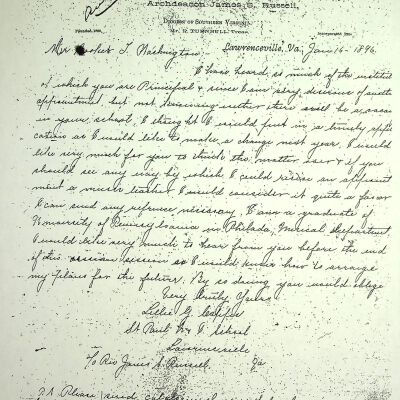 Archdeacon James S. Russell,
Diocese of Southern Virginia
Mr. R. Treas.
Lawrenceville, Va., Jan 14 - 1896.
Mr Booker T. Washington
I have heard so much of the
of which you are Principal & since I am very desirous of
appointment, but not knowing whether there will be a
in your school, I thought I would put in a timely
cation as I would like to make a change next year. I would
like very much for you to think this matter over & if you
should see any way by which I could receive an
ment a music teacher I would consider it quite a favor
I can send any necessary. I am a graduate of
University of Pennsylvania in Philada, Musical Department
I would like very much to hear from you before the end
of this session so I would know how to arrange
my plans for the future. By so doing you would oblige
Very Truly Yours
G.
St Paul N & I School
Lawrenceville
c/o Rev James S. Russell. Va
P.S. Please send